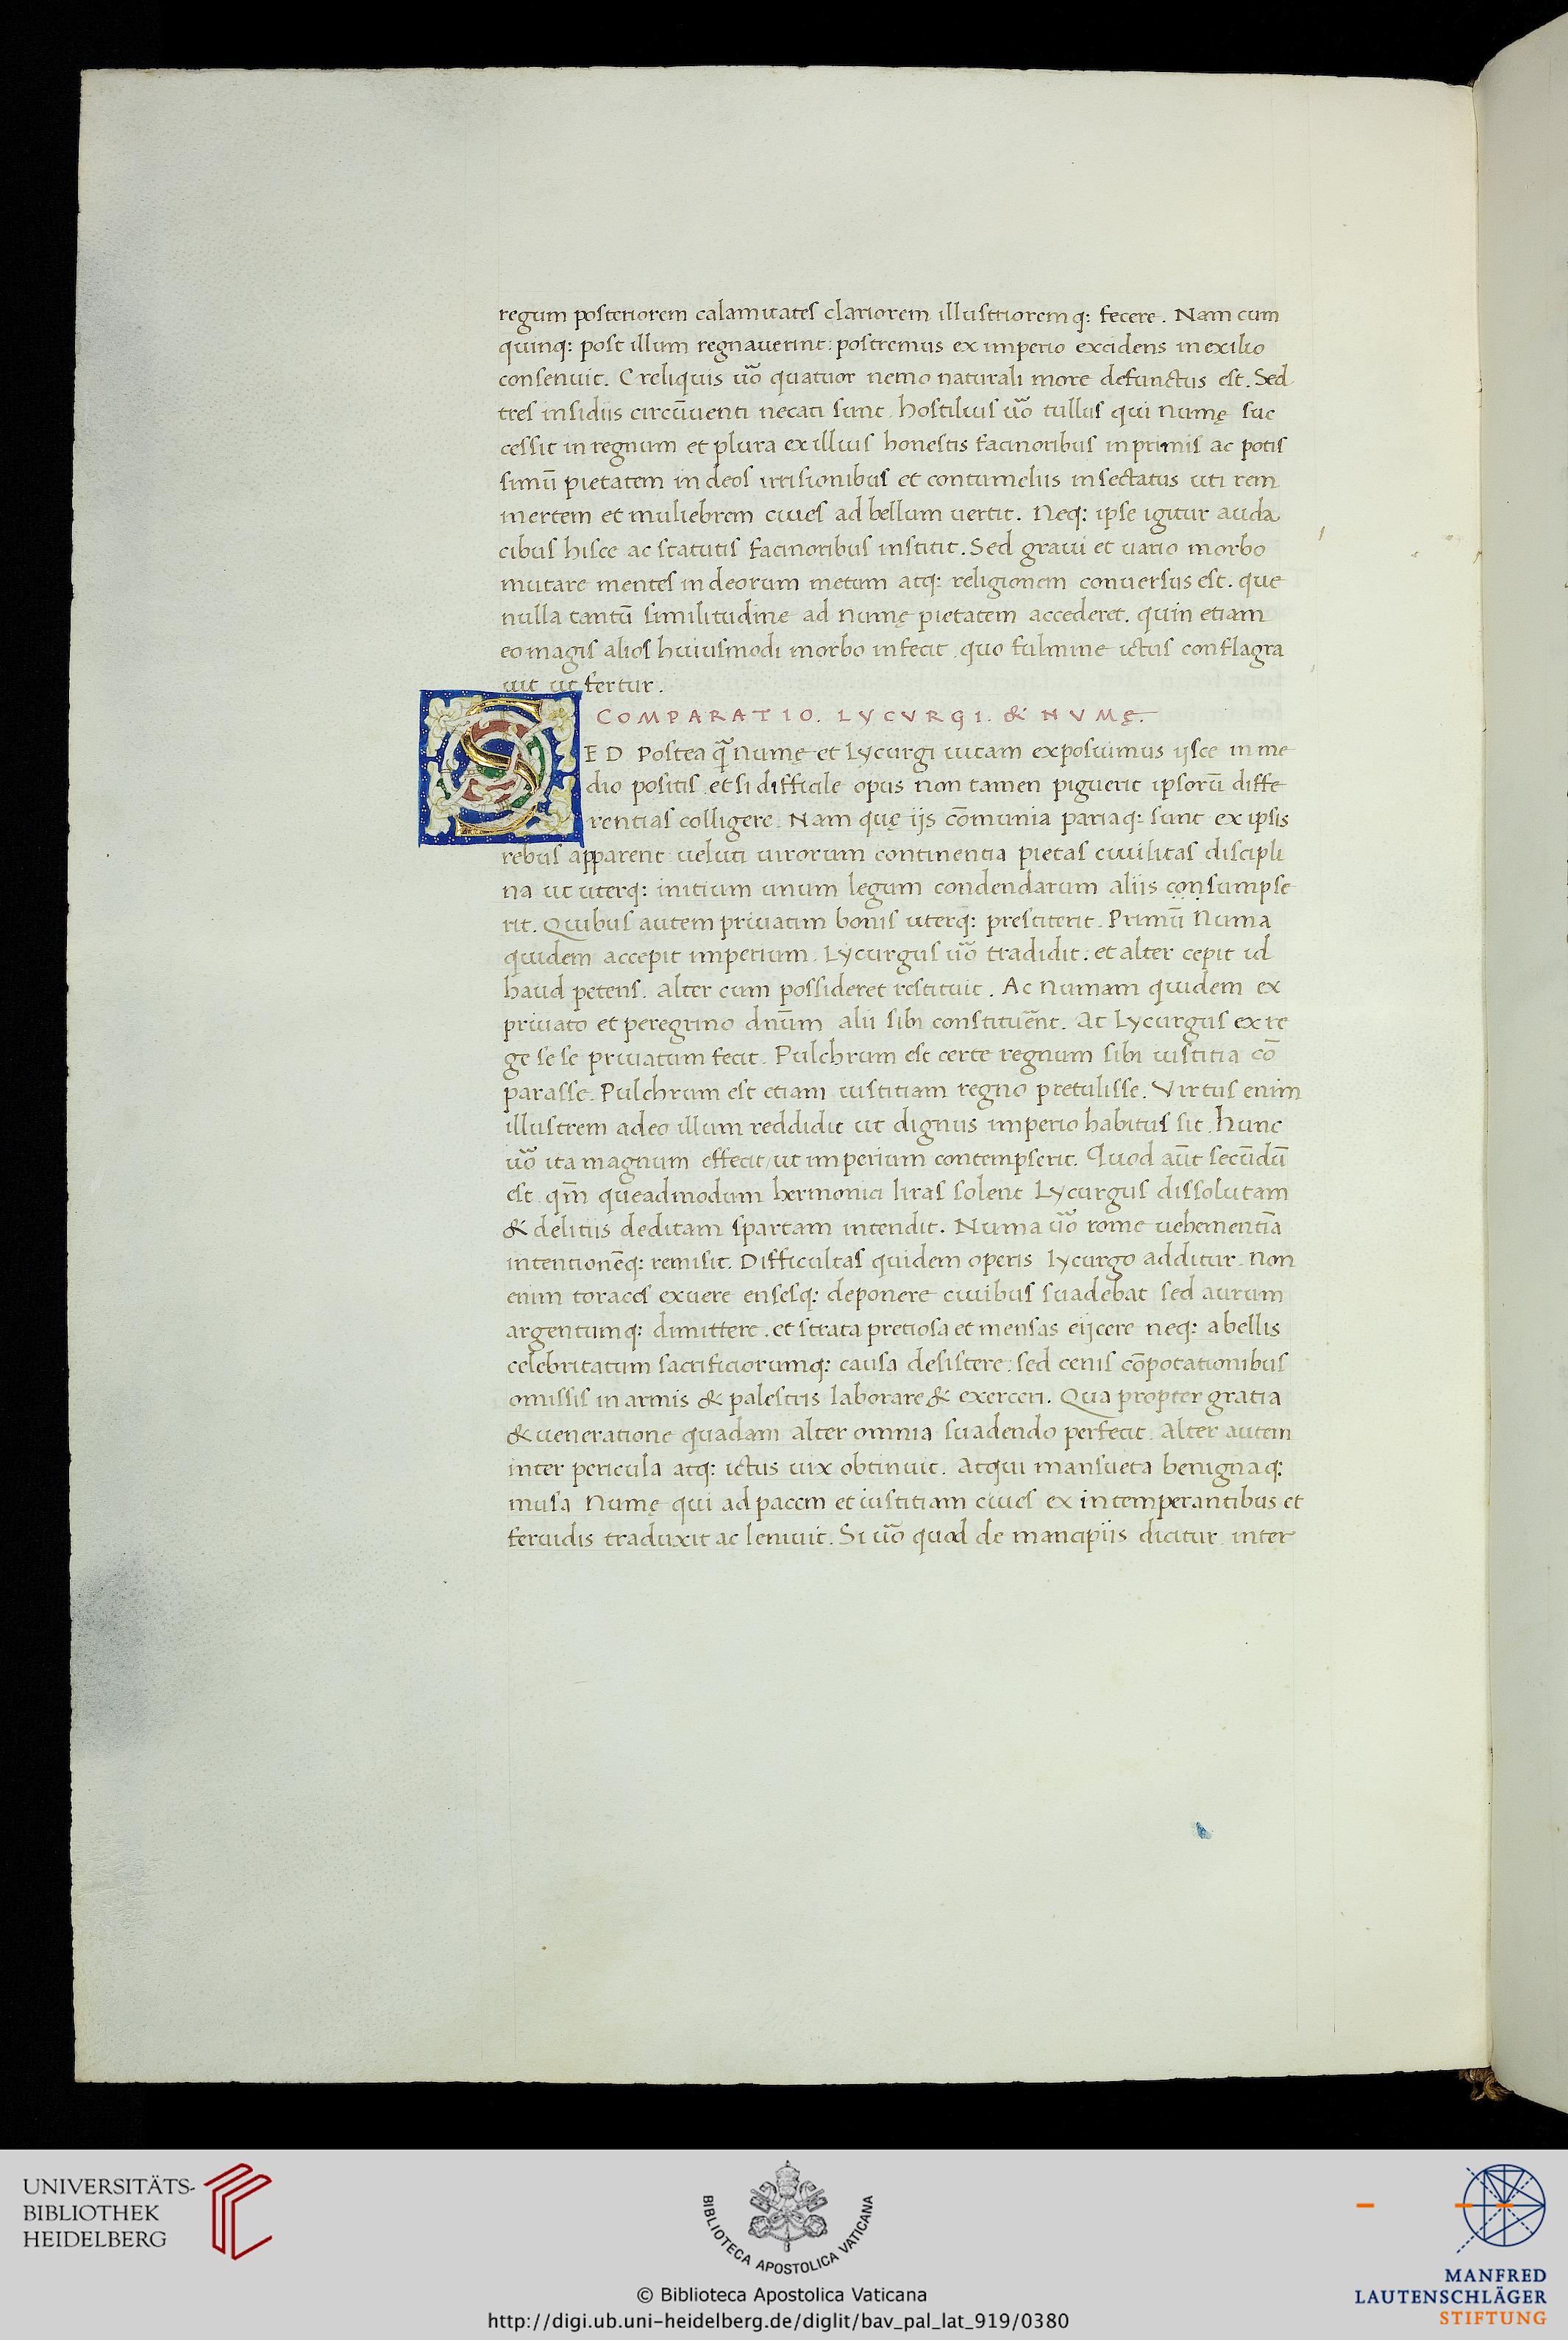 regum posteriorem calamitates clariorem illustriorem q: fecere. Nam cum
quinq: post illum regnaverint: postremus ex imperio excidens in exilio
consenuit. E reliquis uõ quatuor nemo naturali more defunctus est. Sed
tres insidiis circũventi necati sunt. hostilius uõ tullus qui numę suc
cessit in regnum et plura ex illius honestis facinoribus inprimis ac potis
simũ pietatem in deos irrisionibus et contumeliis insectatus uti rem
inertem et muliebrem cives ad bellum vertit. Neq: ipse igitur auda
cibus hisce ac statutis facinoribus institit. Sed gravi et vario morbo
mutare mentes in deorum metum atq: religionem conversus est. que
nulla tantũ similitudine ad numę pietatem accederet. quin etiam
eo magis alios huiusmodi morbo infecit. quo fulmine ictus conflagra
uit ut fertur.
COMPARATIO. LYCVRGI. & NVMĘ.
SED Postea q̃ numę et Lycurgi vitam exposuimus ijsce in me
dio positis et si difficile opus non tamen piguerit ipsorũ diffe
rentias colligere. Nam quę ijs cõmunia pariaq: sunt ex ipsis
rebus apparent veluti virorum continentia pietas civilitas discipli
na ut uterq: initium unum legum condendarum aliis consumpse
rit. Quibus autem privatim bonis uterq: prestiterit. Primũ Numa
quidem accepit imperium. Lycurgus uõ tradidit: et alter cepit id
haud petens. alter cum possideret restituit. Ac Numam quidem ex
privato et peregrino dnũm alii sibi constituẽnt. At Lycurgus ex re
ge se se privatum fecit. Pulchrum est certe regnum sibi iustitia cõ
parasse. Pulchrum est etiam iustitiam regno pretulisse. Virtus enim
illustrem adeo illum reddidit ut dignus imperio habitus sit. hunc
uõ ita magnum effecit / ut imperium contempserit. Quod aũt secũdũ
est qm̃ queadmodum hermonici liras solent Lycurgus dissolutam
& delitiis deditam spartam intendit. Numa uõ rome vehementiã
intentionẽq: remisit. Difficultas quidem operis Lycurgo additur. non
enim toraces exuere ensesq: deponere civibus suadebat sed aurum
argentumq: dimittere. et strata pretiosa et mensas eijcere neq: a bellis
celebritatum sacrificiorumq: causa desistere: sed cenis cõpotationibus
omissis in armis & palestris laborare & exerceri. Qua propter gratia
& veneratione quadam alter omnia suadendo perfecit. Alter autem
inter pericula atq: ictus vix obtinuit. Atqui mansueta benignaq:
musa Numę qui ad pacem et iustitiam cives ex intemperantibus et
fervidis traduxit ac lenivit. Si uõ quod de mancipiis dicitur inter
UNIVERSITÄTS-
BIBLIOTHEK
HEIDELBERG
BIBLIOTECA APOSTOLICA VATICANA
© Biblioteca Apostolica Vaticana
http://digi.ub.uni-heidelberg.de/diglit/bav_pal_lat_919/0380
MANFRED
LAUTENSCHLÄGER
STIFTUNG